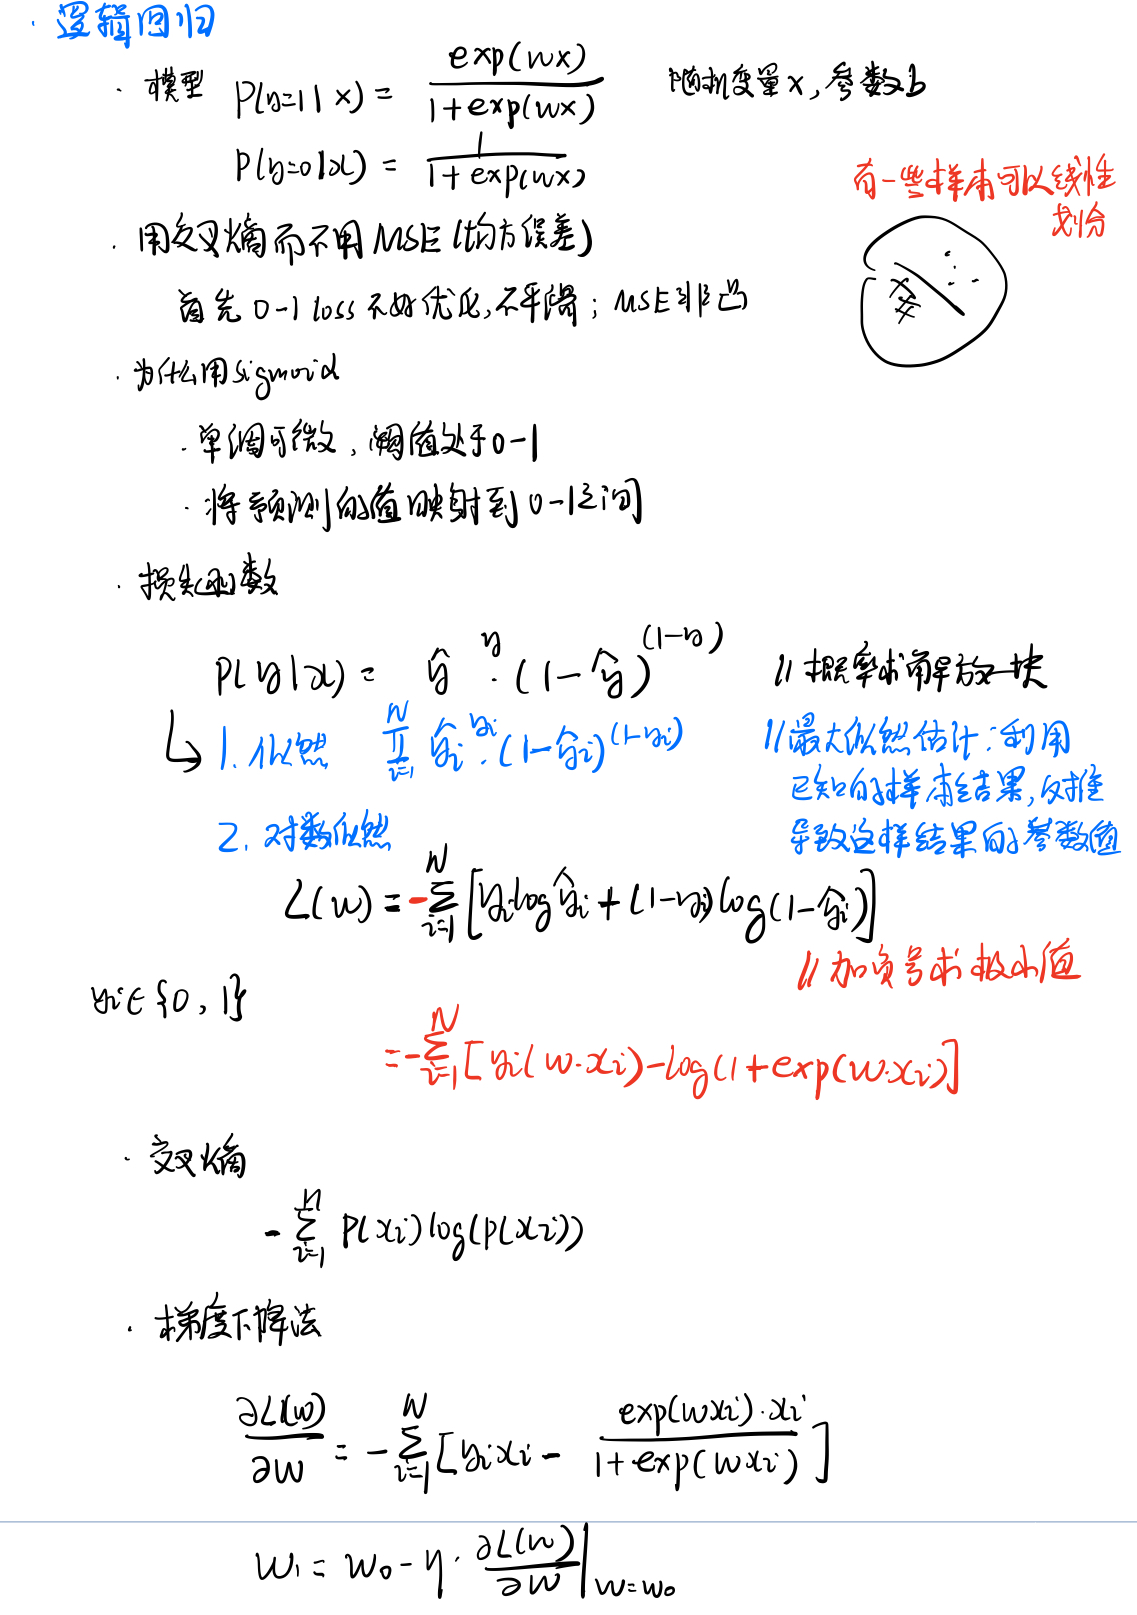 · 逻辑回归
· 模型 P(y=1|x) = exp(wx) / 1+exp(wx) 随机变量x,参数b
P(y=0|x) = 1 / 1+exp(wx)
有一些样本可以线性
划分
· 用交叉熵而不用MSE(均方误差)
首先 0-1 loss 不好优化,不平滑; MSE非凸
· 为什么用sigmoid
· 单调可微,阈值处于0-1
· 将预测的值映射到0-1之间
· 损失函数
P(y|x) = ŷ^y · (1-ŷ)^(1-y) // 概率求解放一块
↳ 1. 似然 ∏_{i=1}^{N} ŷi^yi · (1-ŷi)^(1-yi) // 最大似然估计:利用
已知的样本结果,反推
导致这样结果的参数值
2. 对数似然
L(w) = -∑_{i=1}^{N} [yi log ŷi + (1-yi) log(1-ŷi)]
// 加负号求极小值
yi∈{0, 1}
= -∑_{i=1}^{N} [yi(w·xi) - log(1+exp(w·xi)]
· 交叉熵
- ∑_{i=1}^{n} P(xi) log(p(xi))
· 梯度下降法
∂L(w) / ∂w = - ∑_{i=1}^{N} [yi xi - exp(wxi)·xi / 1+exp(wxi)]
w1 = w0 - η · ∂L(w) / ∂w |w=w0